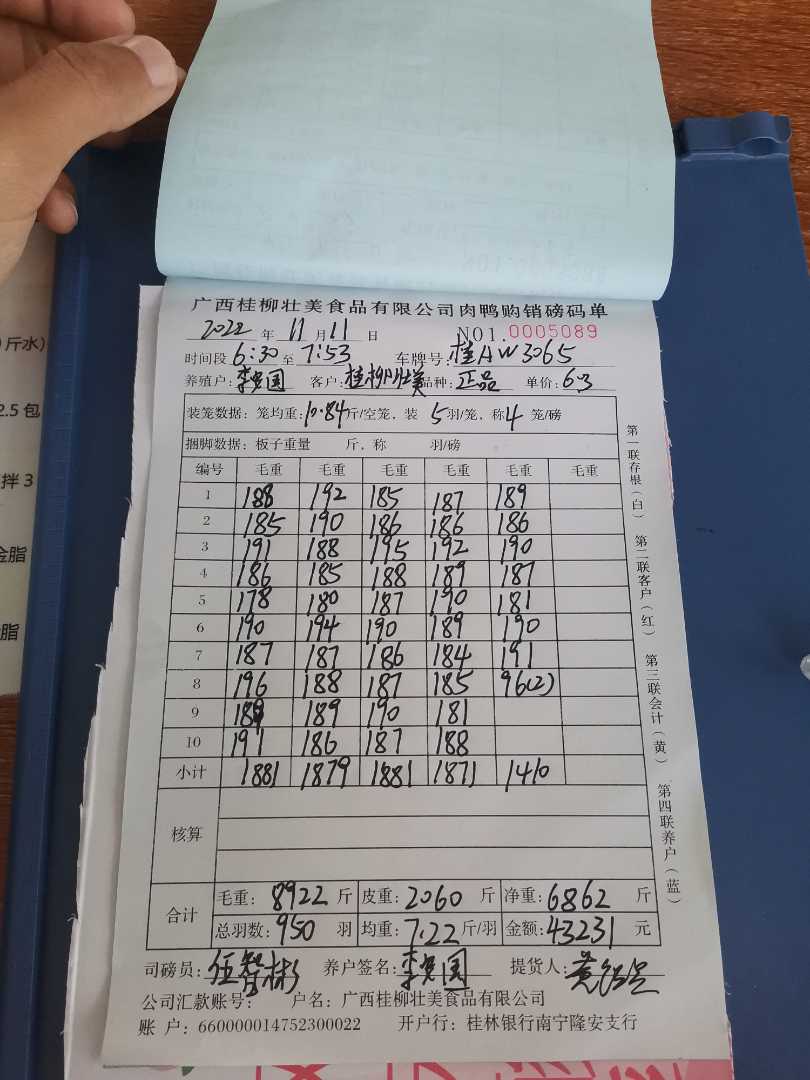 广西桂柳壮美食品有限公司肉鸭购销磅码单
2022 年 11 月 11 日 NO1. 0005089
时间段 6:30 至 7:53 车牌号: 桂AW3065
养殖户: 李宽国 客户: 桂柳壮美 品种: 正品 单价: 6.3
装笼数据: 笼均重: 10.84 斤/空笼, 装 5 羽/笼, 称 4 笼/磅
捆脚数据: 板子重量 斤, 称 羽/磅
编号 毛重 毛重 毛重 毛重 毛重 毛重
1 188 192 185 187 189
2 185 190 186 186 186
3 191 188 195 192 190
4 186 185 188 189 187
5 178 180 187 190 181
6 190 194 190 189 190
7 187 187 186 184 191
8 196 188 187 185 96(2)
9 189 189 190 181
10 191 186 187 188
小计 1881 1879 1881 1871 1410
核算
合计 毛重: 8922 斤 皮重: 2060 斤 净重: 6862 斤
总羽数: 950 羽 均重: 7.22 斤/羽 金额: 43231 元
司磅员: 养户签名: 提货人:
公司汇款账号: 户名: 广西桂柳壮美食品有限公司
账 户: 660000014752300022 开户行: 桂林银行南宁隆安支行
第一联存根(白) 第二联客户(红) 第三联会计(黄) 第四联养户(蓝)
斤水)
2.5 包
拌 3
金脂
脂